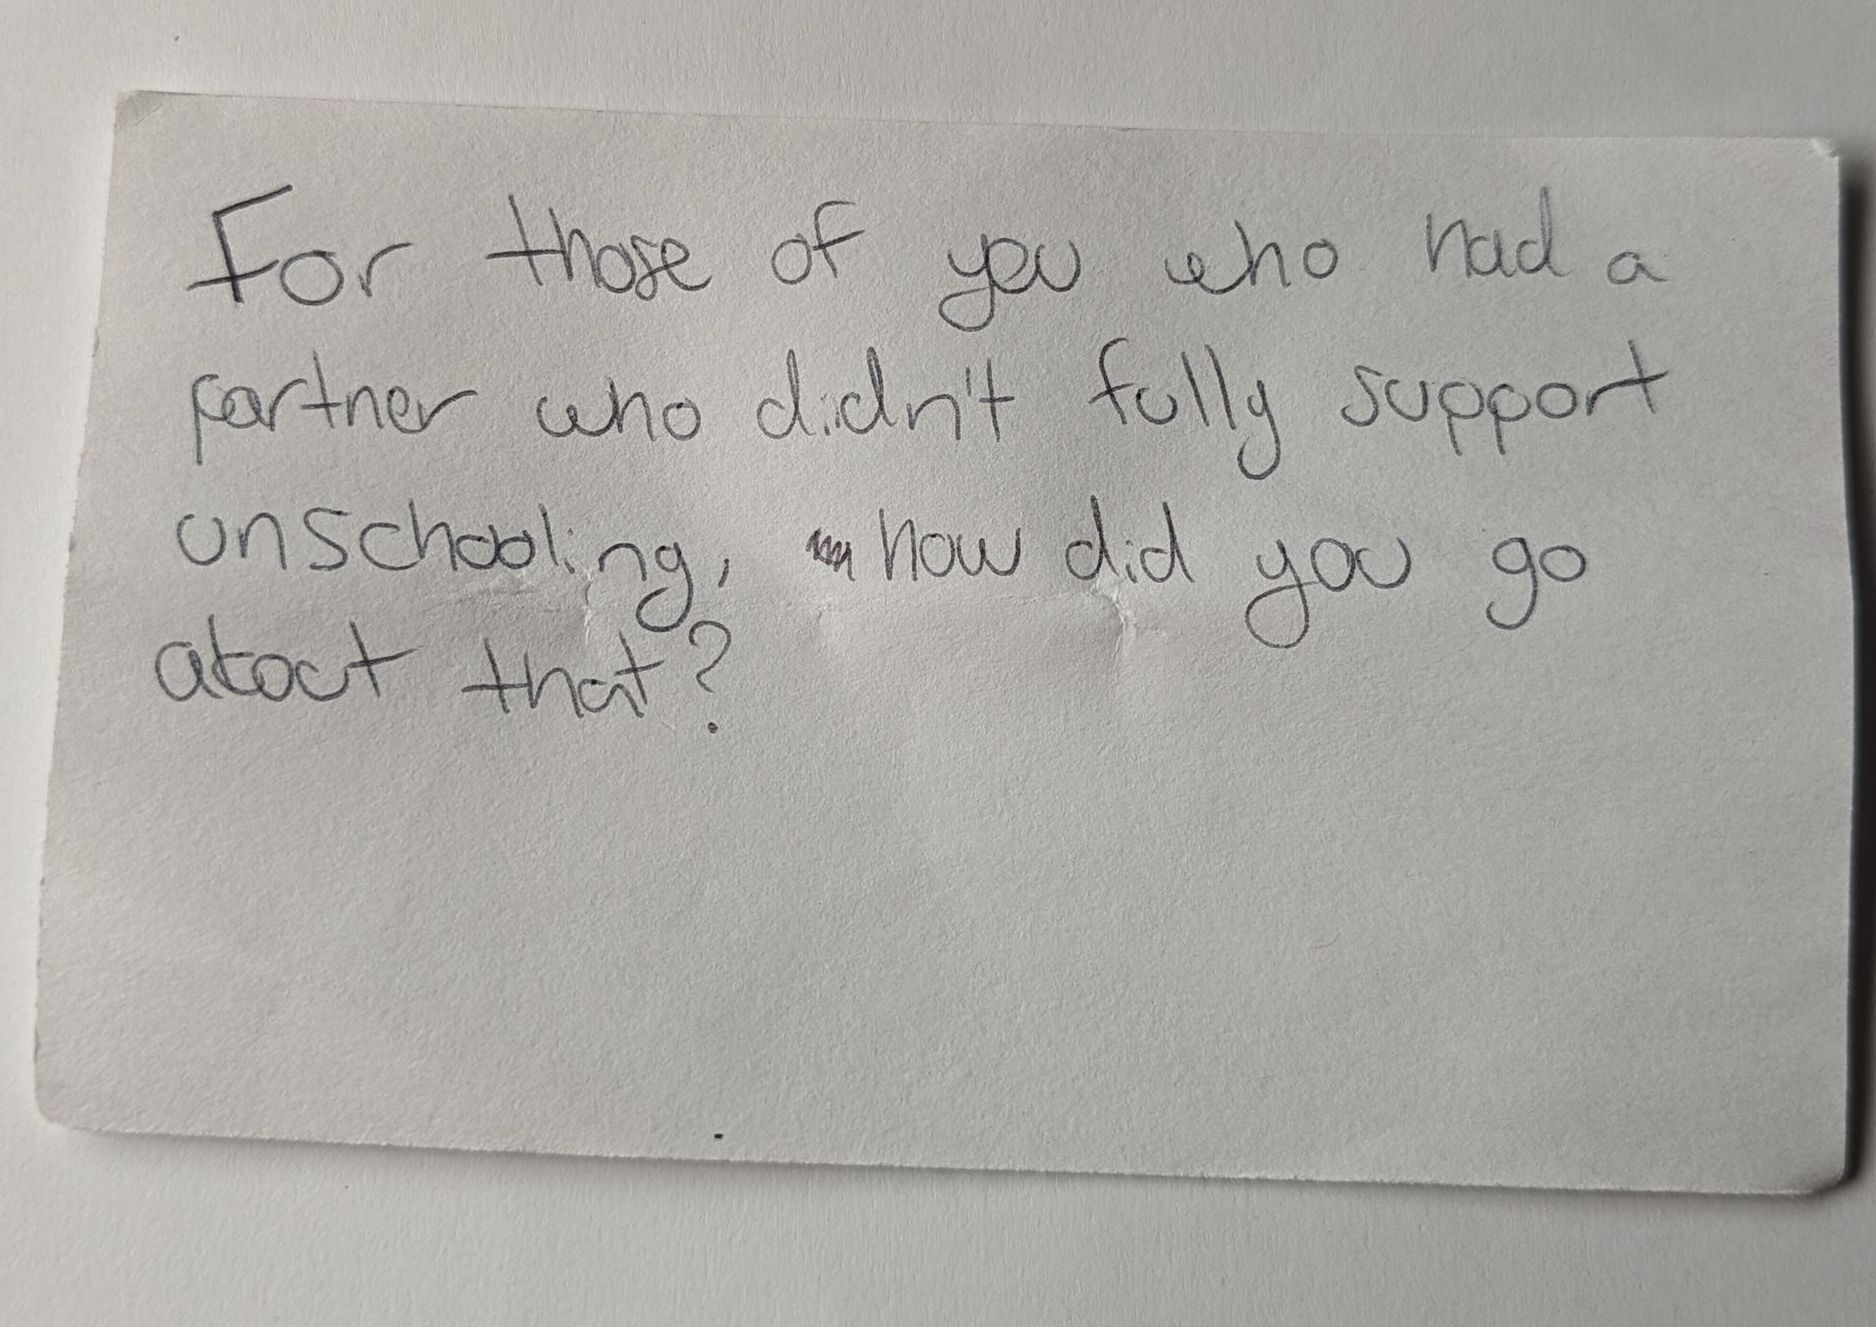 For those of you who had a
partner who didn't fully support
unschooling, how did you go
about that?